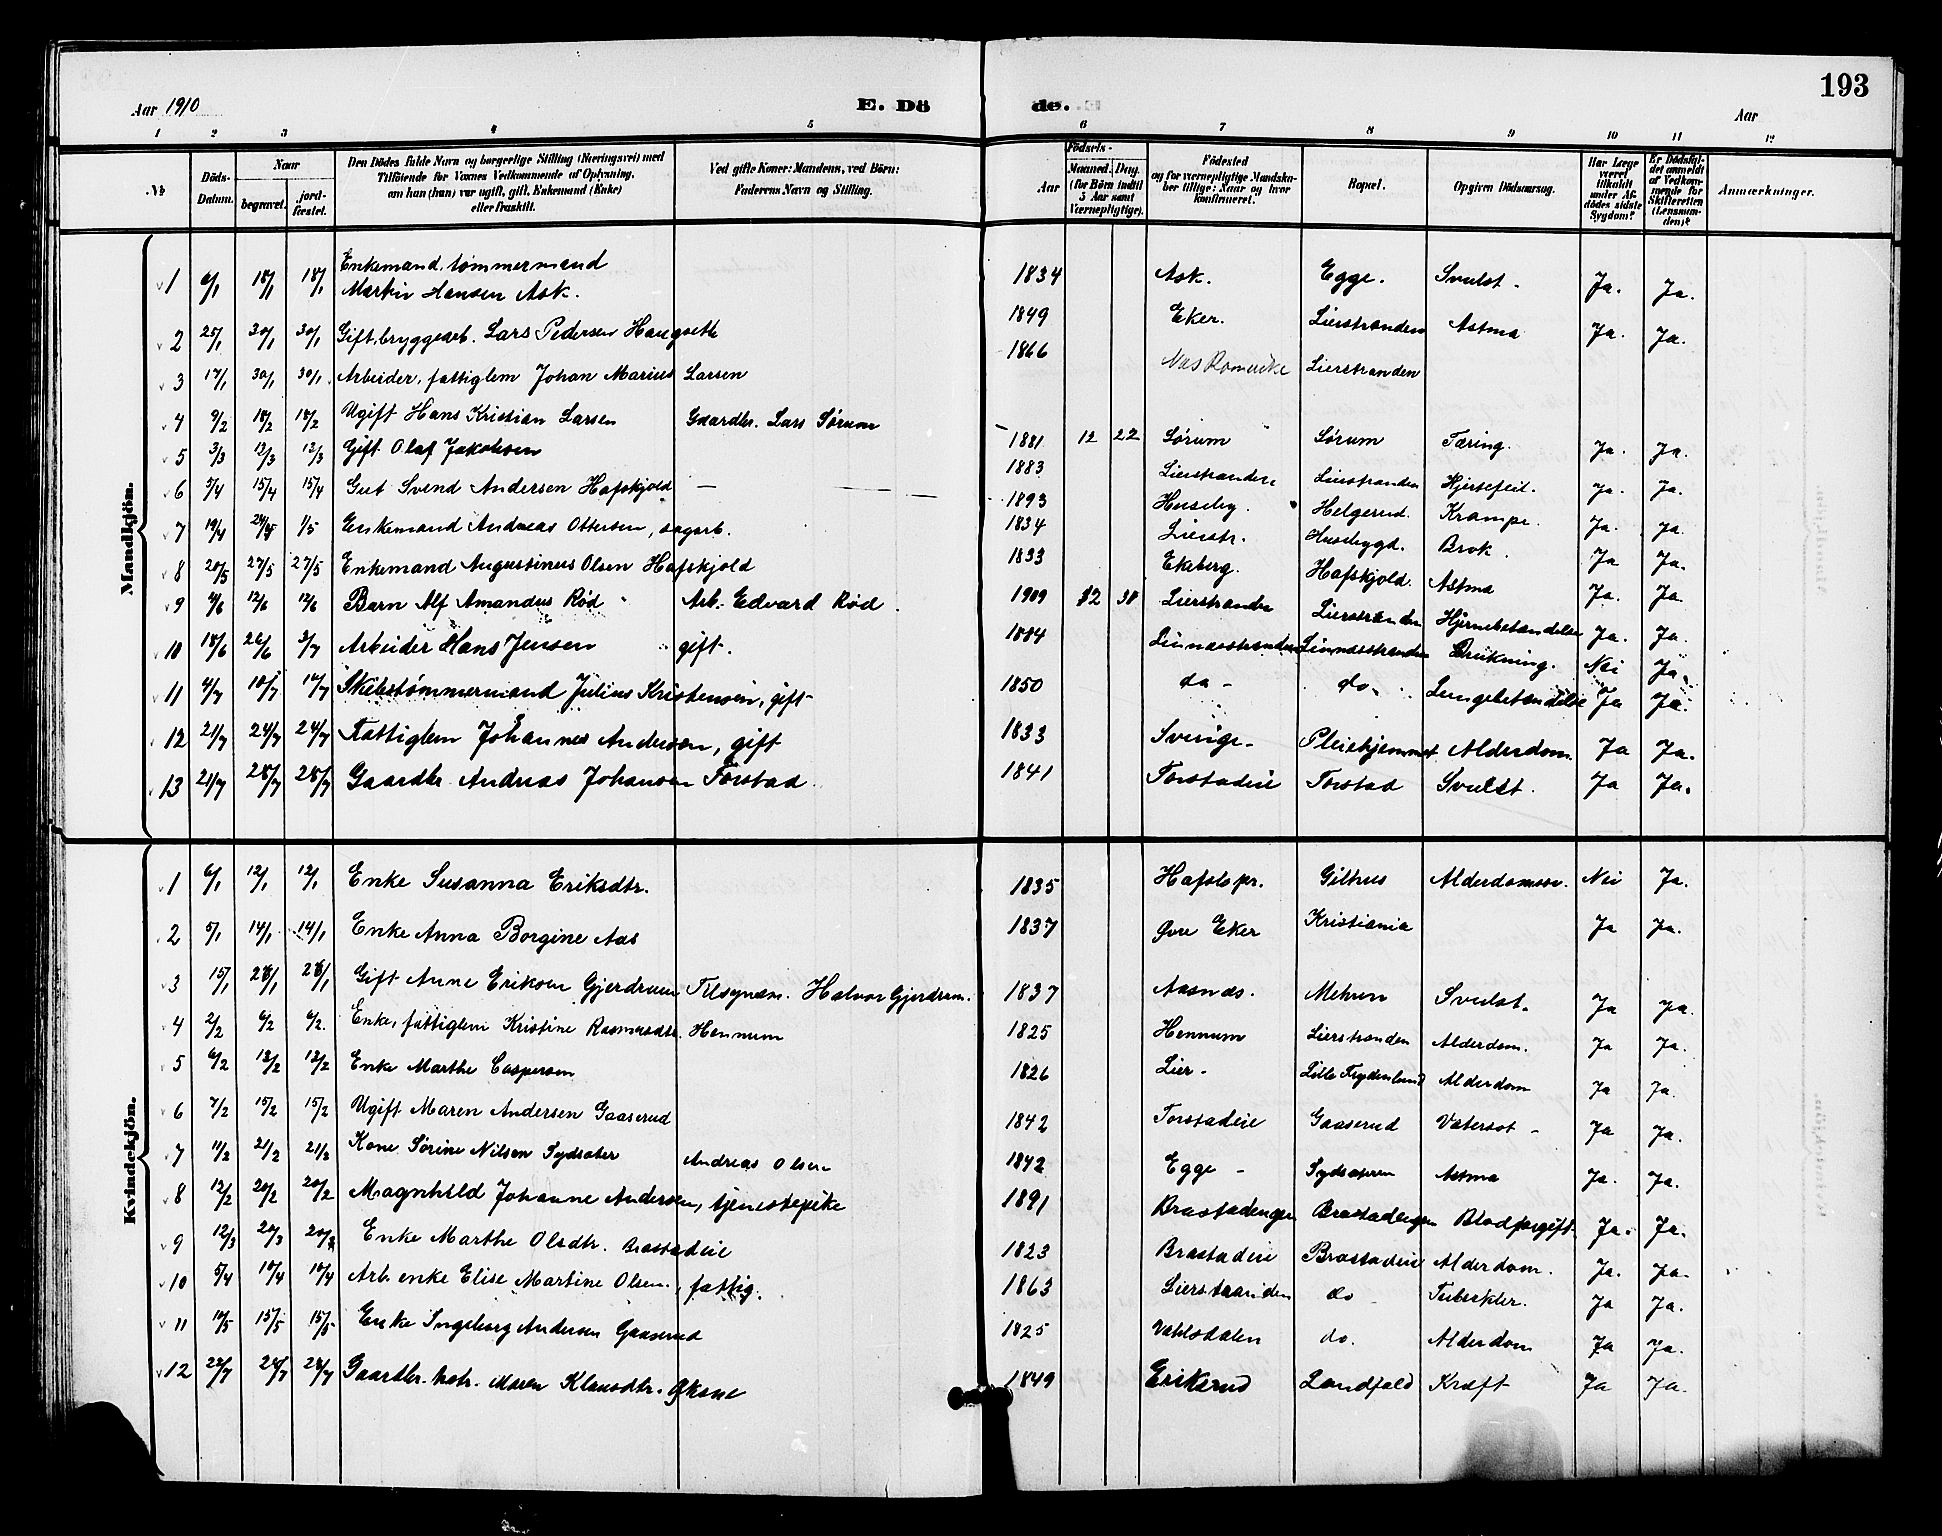 193
Aar 1910
E. Dö
de.
Aar
1 2 3 4 5 6 7 8 9 10 11 12
№
Döds-Datum.
Naar
begravet.
jord-fæstet.
Den Dödes fulde Navn og borgerlige Stilling (Næringsvei) med Tilföiende for Voxnes Vedkommende af Oplysning, om han (hun) var ugift, gift, Enkemand (Enke) eller fraskilt.
Ved gifte Koner: Mandens, ved Börn: Faderens Navn og Stilling.
Födsels-
Aar
Maaned. Dag.
(for Börn indtil 5 Aar samt Værnepligtige).
Födested og for værnepligtige Mandskaber tillige: Naar og hvor konfirmeret.
Bopæl.
Opgiven Dödsaarsag.
Har Læge været tilkaldt under Afdödes sidste Sygdom?
Er Dödsfaldet anmeldt af Vedkommende for Skifteretten (Lensmanden)?
Anmærkninger.
Mandkjön.
1 6/1 18/1 18/1 Enkemand, tømmermand Martin Hansen Ask. 1834 Ask. Egge. Svulst. Ja. Ja.
2 25/1 30/1 30/1 Gift, bryggearb. Lars Pedersen Haugseth 1849 Eker. Lierstranden Astma Ja. Ja.
3 17/1 30/1 30/1 Arbeider, fattiglem Johan Marius Larsen 1866 Nas Romerike Lierstranden
4 9/2 18/2 18/2 Ugift Hans Kristian Larsen Gaardbr. Lars Sørum 1881 12 22 Sørum Sørum Tæring. Ja. Ja.
5 3/3 12/3 12/3 Gift Olaf Jakobsen 1883 Lierstranden Lierstranden Hjertefeil. Ja. Ja.
6 5/4 15/4 15/4 Gut Svend Andersen Hafskjold — 1893 Huseby. Helgerud. Krampe. Ja. Ja.
7 19/4 24/4 1/5 Enkemand Andreas Ottersen, sagarb. 1834 Lierstr. Husebygd. Brok. Ja Ja.
8 20/5 27/5 27/5 Enkemand Augustinus Olsen Hafskjold 1833 Ekeberg. Hafskjold. Astma Ja. Ja.
9 4/6 12/6 12/6 Barn Alf Amandus Rød Arb. Edvard Rød. 1909 12 30 Lierstranden Lierstranden Hjernebetændelse Ja. Ja.
10 18/6 26/6 3/7 Arbeider Hans Jensen gift. 1884 Linnesstranden Linnesstranden Drukning. Nei Ja.
11 4/7 10/7 17/7 Skibstømmermand Julius Kristensen, gift 1850 do do. Lungebetændelse Ja Ja.
12 21/7 24/7 24/7 Fattiglem Johannes Andersen, gift 1833 Sverige. Pleiehjemmet Alderdom. Ja Ja.
13 21/7 28/7 28/7 Gaardbr. Andreas Johansen Torstad. 1841 Torstadeie Torstad Svulst. Ja Ja.
Kvindekjön.
1 6/1 12/1 12/1 Enke Susanna Eriksdtr. 1835 Hafslopr. Gilhus Alderdomssv. Nei Ja.
2 5/1 14/1 14/1 Enke Anna Borgine Aas 1837 Øvre Eker Kristiania Ja Ja.
3 15/1 23/1 23/1 Gift Anne Eriksen Gjerdrum Tilsynsm. Halvor Gjerdrum. 1837 Aasnes. Mehren Svulst. Ja Ja.
4 2/2 6/2 6/2. Enke, fattiglem Kristine Rasmusdtr. Hennum 1825 Hennum Lierstranden Alderdom. Ja Ja.
5 6/2 13/2 13/2 Enke Marthe Caspersen 1826 Lier. Lille Frydenlund Alderdom Ja Ja.
6 7/2 15/2 15/2 Ugift Maren Andersen Gaaserud 1842 Torstadeie Gaaserud Vatersot Ja Ja.
7 11/2 21/2 21/2 Kone Sørine Nilsen Sydsæter Andreas Olsen 1842 Egge Sydsæteren Astma Ja. Ja.
8 12/2 20/2 20/2 Magnhild Johanne Andersen, tjenestepike 1891 Brastadengen Brastadengen Blodforgift. Ja. Ja.
9 12/3 20/3 20/3 Enke Marthe Olsdtr. Brastadeie 1823 Brastadeie Brastadeie Alderdom. Ja. Ja.
10 5/4 10/4 10/4 Arb. enke Elise Martine Olsen, fattig. 1863 Lierstranden do Tuberkler. Ja Ja.
11 10/5 15/5 15/5 Enke Ingeborg Andersen Gaaserud 1825 do. Alderdom Ja Ja.
12 22/7 28/7 28/7 Gaardbr. Maren Klausdtr. Økone 1849 Erikerud Landfald Kræft Ja Ja.